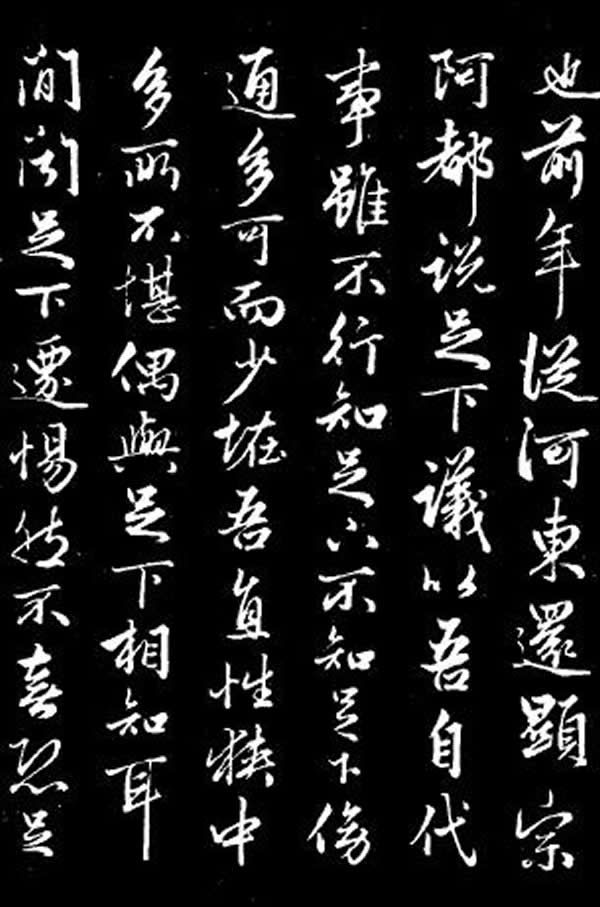 也前年從河東還顯宗
阿都說足下議以吾自代
事雖不行知足下不知足下傍
通多可而少恠吾直性狹中
多所不堪偶與足下相知耳
間聞足下遷惕然不喜恐足